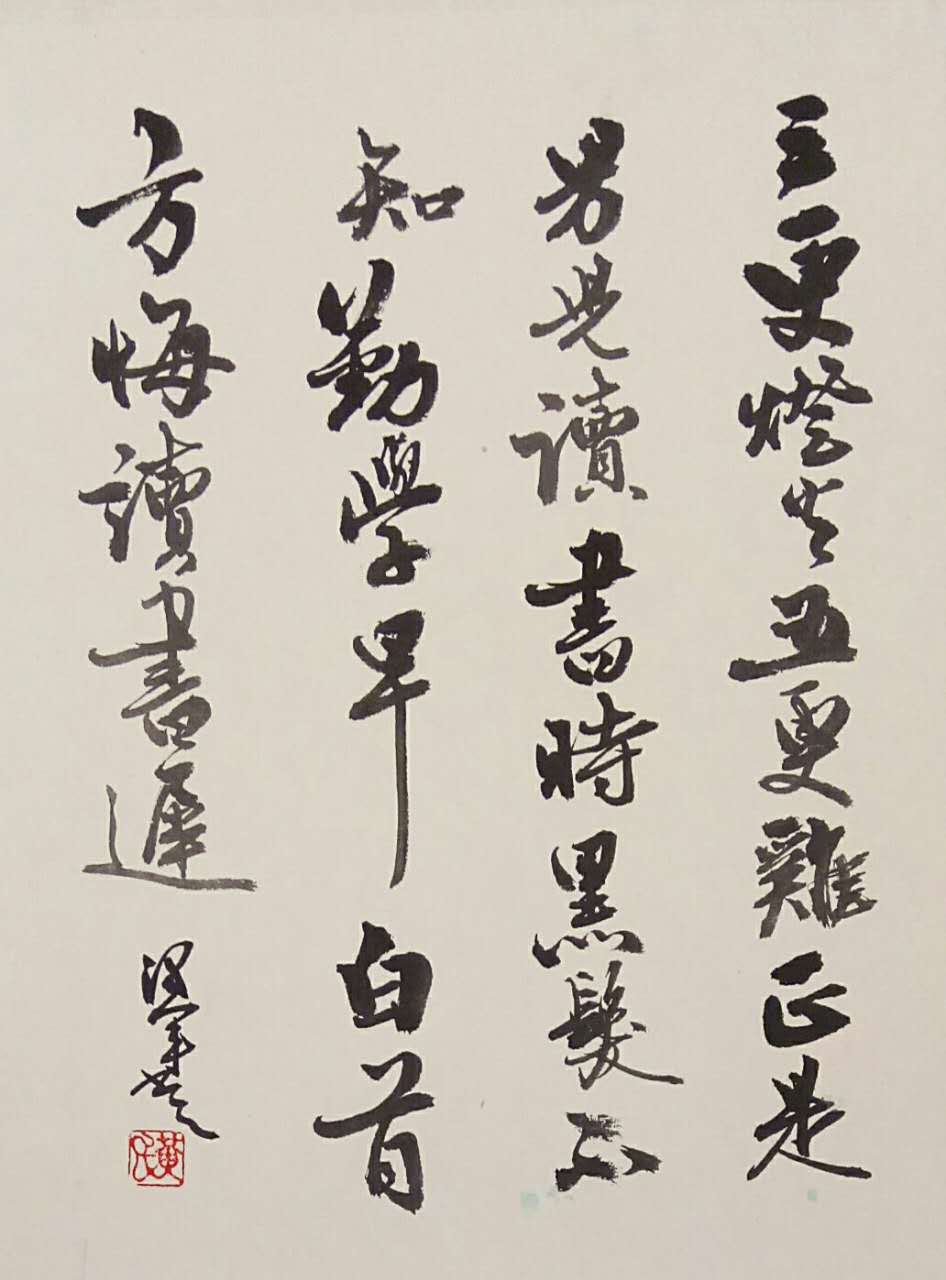 三更燈火五更雞正是
男兒讀書時黑髮不
知勤學早白首
方悔讀書遲